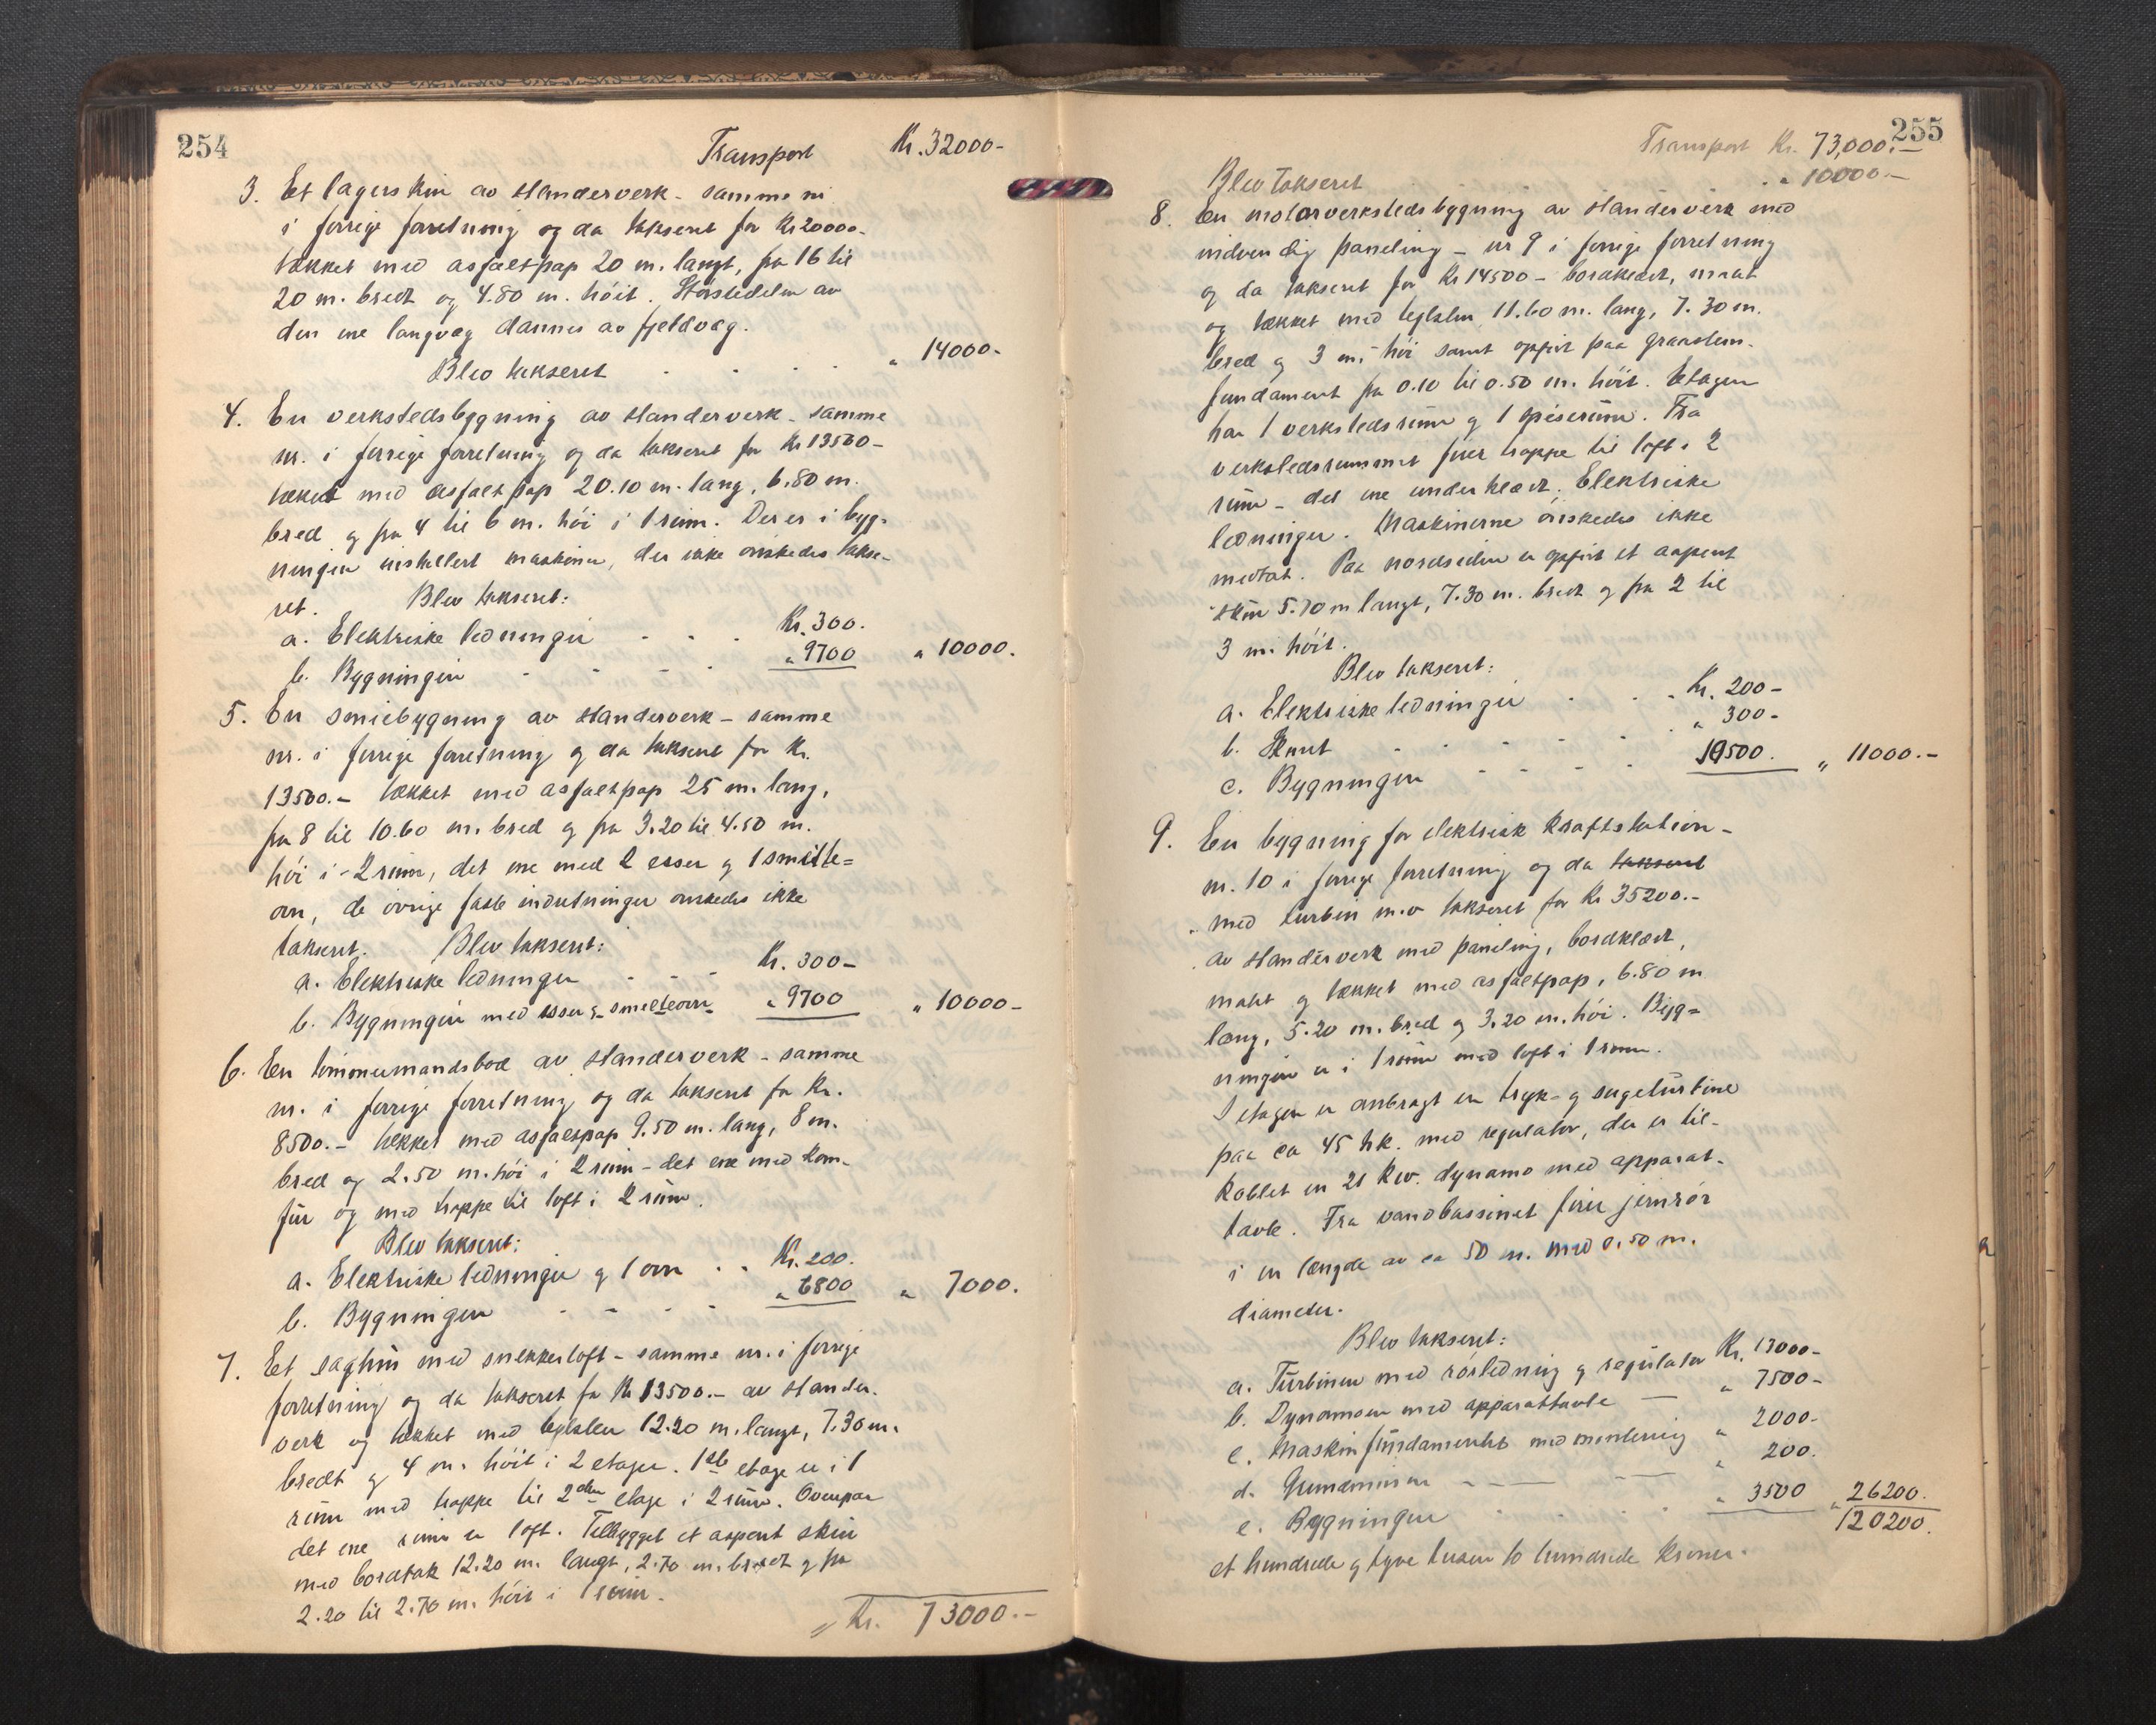 254
Transport Kr. 32000-
3. Et lagerskur av stenderverk - samme nr.
i forrige forretning og da takseret for Kr 20000-
tækket med asfaltpap 20 m. langt, fra 16 til
20 m. bredt og 4.80 m. höit. Störstedelen av
den ene langvæg dannes av fjeldvæg.
Blev takseret . . . . " 14000-
4. En verkstedsbygning av standerverk - samme
nr. i forrige forretning og da takseret for Kr 13500-
tækket med asfaltpap 20.10 m. lang, 6.80 m.
bred og fra 4 til 6 m. höi i 1 rum. Der er i byg-
ningen installert maskiner, der ikke önskedes takse-
ret. Blev takseret:
a. Elektriske ledninger . . . Kr. 300.
b. Bygningen . . . " 9700 " 10000.
5. En smiebygning av standerverk - samme
nr. i forrige forretning og da takseret for Kr.
13500.- tækket med asfaltpap 25 m. lang,
fra 8 til 10.60 m. bred og fra 3.20 til 4.50 m.
höi i 2 rum, det ene med 2 esser og 1 smelte=
ovn, de övrige faste indretninger önskedes ikke
takseret. Blev takseret:
a. Elektriske ledninger - - - Kr. 300-
b. Bygningen med esser og smelteovn " 9700 " 10000-
6. En tömmermandsbod av standerverk - samme
nr. i forrige forretning og da takseret for Kr.
8500.- tækket med asfaltpap 9.50 m. lang, 8 m.
bred og 2.50 m. höi i 2 rum - det ene med kom-
für og med trappe til loft i 2 rum.
Blev takseret:
a. Elektriske ledninger og 1 ovn . . Kr. 200.
b. Bygningen - - - - " 6800 " 7000.
7. Et saghus med snekkerloft - samme nr. i forrige
forretning og da takseret for Kr 13500.- av stander-
verk og tækket med teglsten 12.20 m. langt, 7.30 m.
bredt og 4 m. höit i 2 etager. 1ste etage er i 1
rum med trappe til 2den etage i 2 rum. Ovenpaa
det ene rum er loft. Tilbygget et aapent skur
med bordtak 12.20 m. langt, 2.70 m. bredt og fra
2.20 til 2.70 m. höit i 1 rum.
Kr. 73000.-
255
Transport Kr. 73,000.-
Blev takseret . . " 10000-
8. En motorverkstedsbygning av standerverk med
indvendig paneling - nr 9 i forrige forretning
og da takseret for Kr 14500- bordklædt, malt
og tækket med teglsten 11.60 m. lang, 7.30 m.
bred og 3 m. höi samt opfört paa graasten-
fundament fra 0.10 til 0.50 m. höit. Etagen
har 1 verkstedsrum og 1 spiserum. Fra
verkstedsrummet förer trappe til loft i 2
rum - det ene underklædt. Elektriske
ledninger. Maskinerne önskedes ikke
medtat. Paa nordsiden er opfört et aapent
skur 5.70 m langt, 7.30 m. bredt og fra 2 til
3 m. höit.
Blev takseret:
a. Elektriske ledninger . . . Kr. 200-
b. Skuret - - - - - " 300-
c. Bygningen - - - - 10500. " 11000.-
9. En bygning for elektrisk kraftstation -
nr. 10 i forrige forretning og da takseret
med turbin m.v takseret for Kr 35200.-
av standerverk med paneling, bordklædt,
malet og tækket med asfaltpap, 6.80 m
lang, 5.20 m. bred og 3.20 m. höi. Byg=
ningen er i 1 rum med loft i 1 rum.
I etagen er anbragt en tryk- og sugeturbine
paa ca 45 hk. med regulator, der er til-
koblet en 21 kw. dynamo med apparat-
tavle. Fra vandbassinet förer jernrör
i en længde av ca 50 m. med 0.50 m.
diameter.
Blev takseret:
a. Turbinen med rörledning og regulator Kr. 13000-
b. Dynamoen med apparattavle — " 7500-
c. Maskinfundamentet med montering " 2000-
d. Grundmuren - — - — " 200.
e. Bygningen . . . . " 3500 " 26200.
120200.
et hundrede og tyve tusen to hundrede kroner.